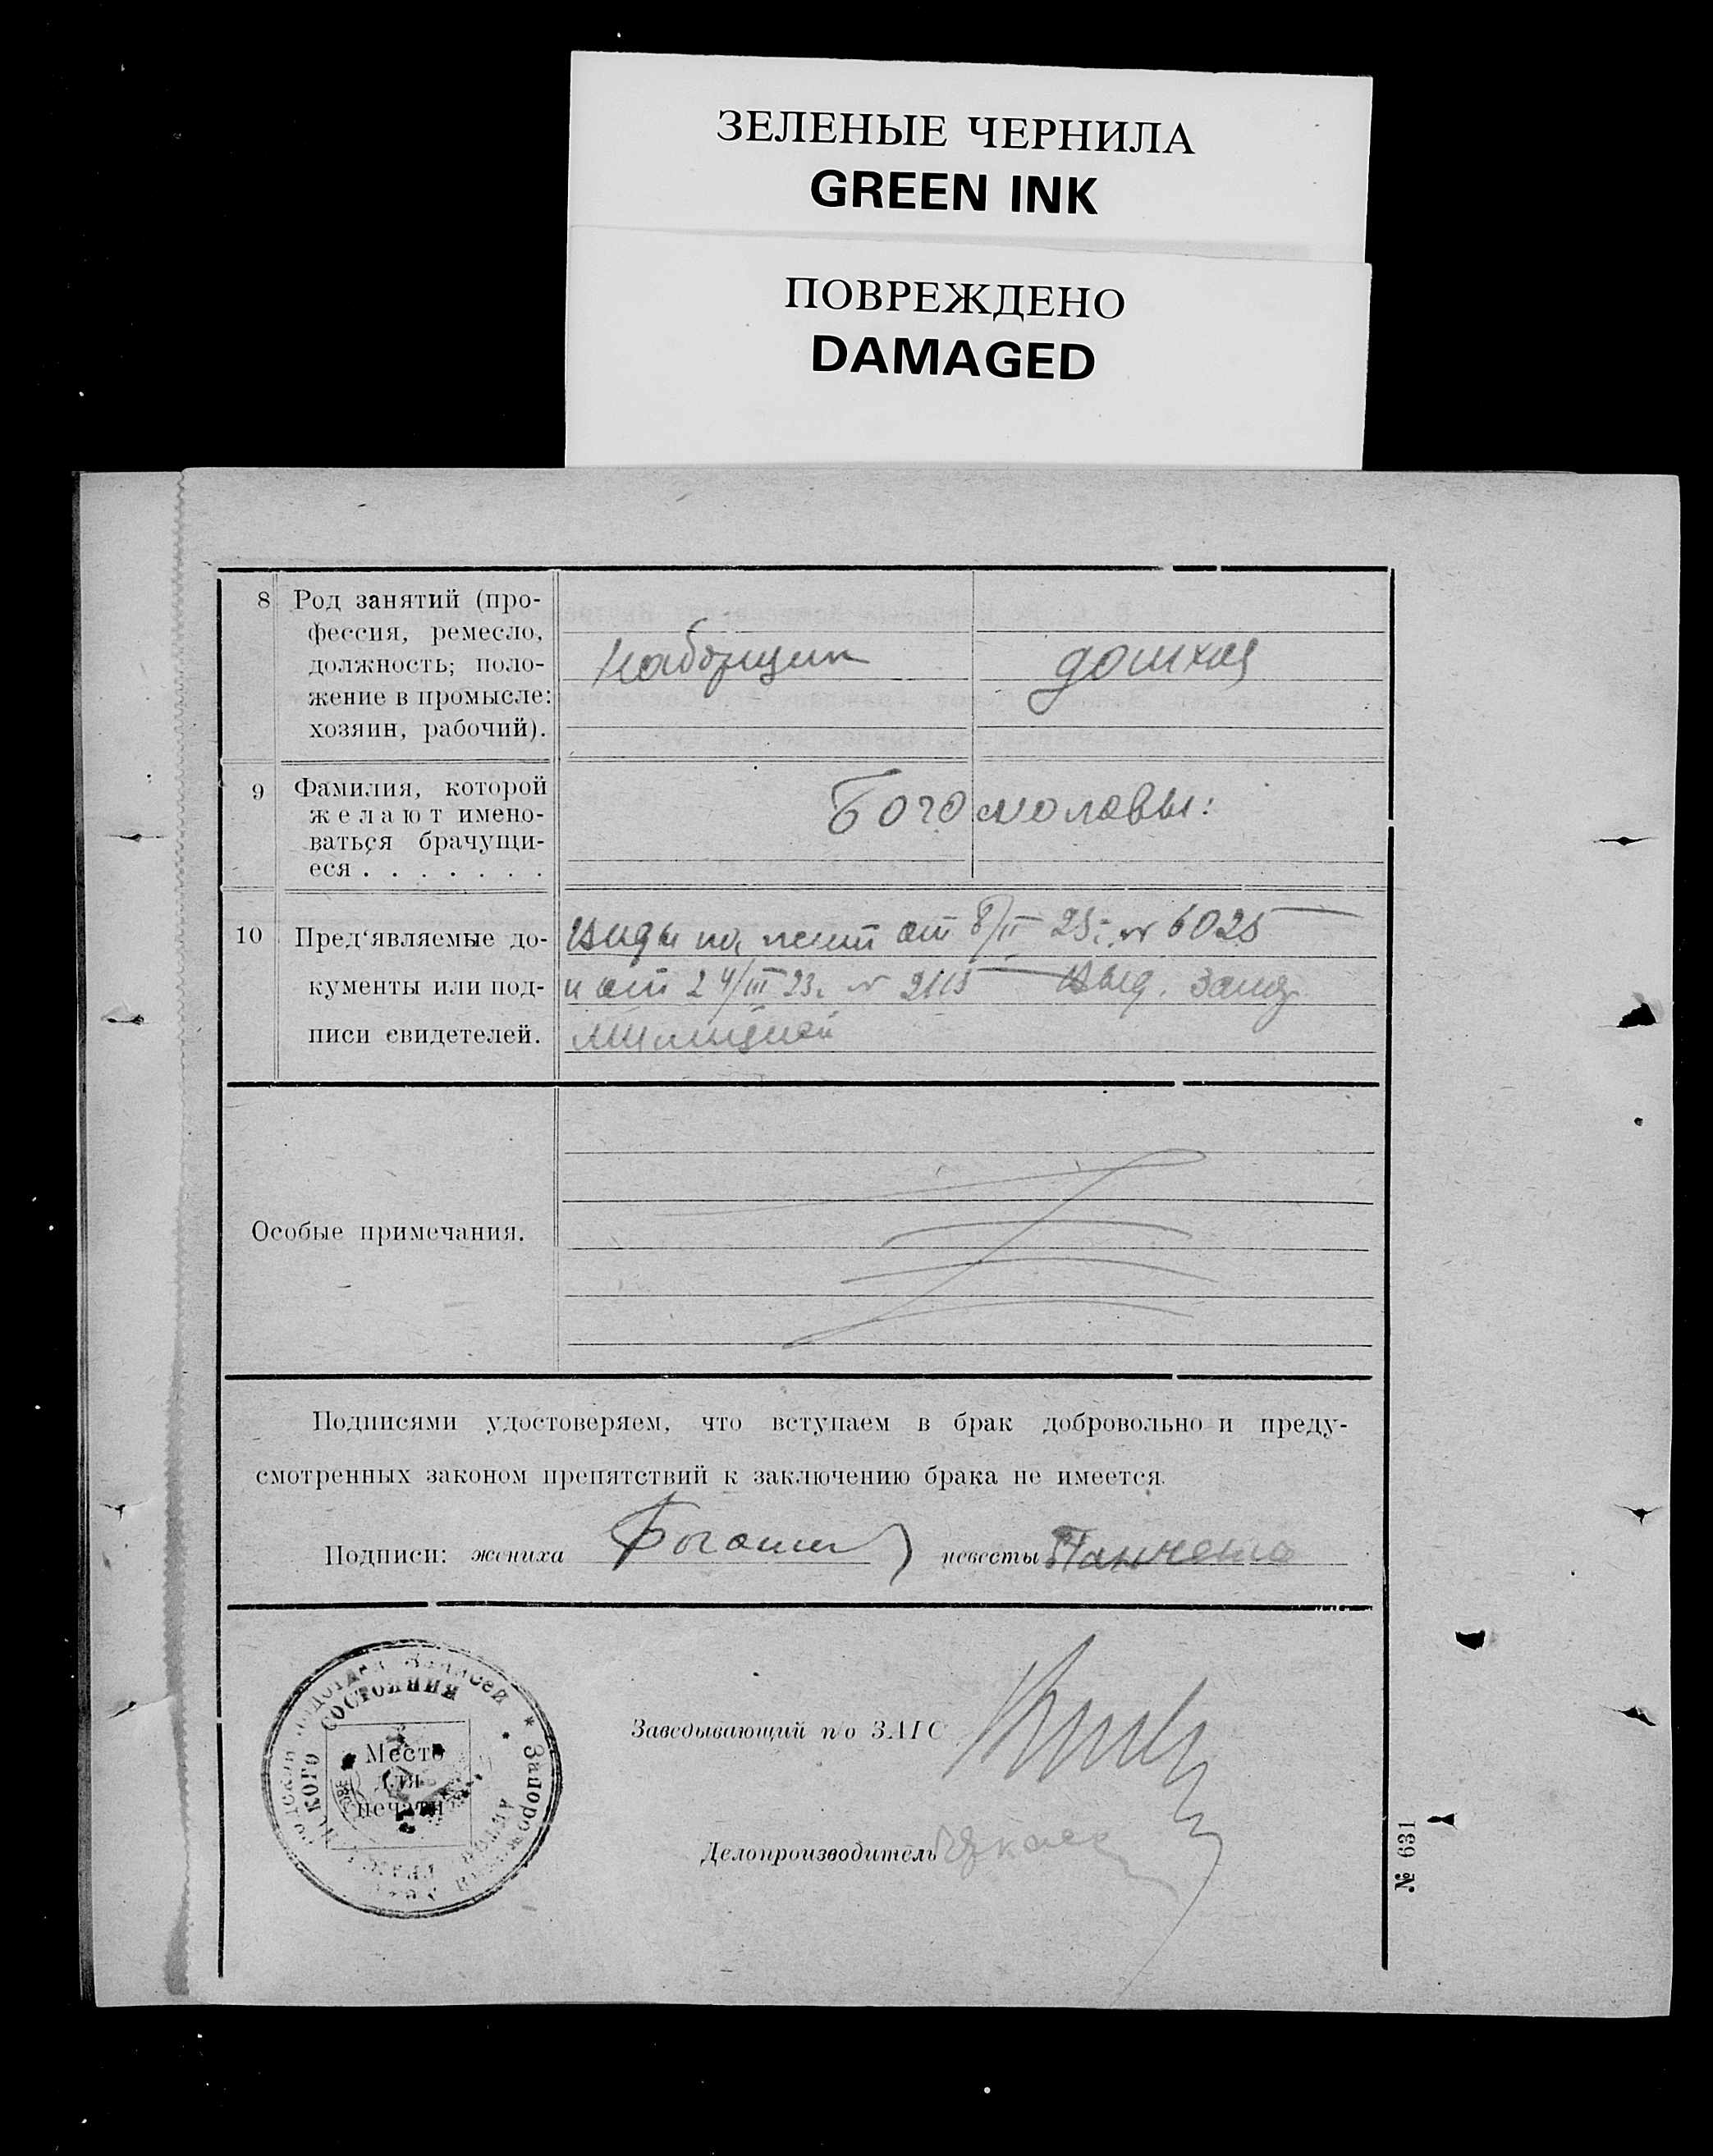 ЗЕЛЕНЫЕ ЧЕРНИЛА
GREEN INK
ПОВРЕЖДЕНО
DAMAGED
8 Род занятий (про-
фессия, ремесло,
должность; поло-
жение в промысле:
хозяин, рабочий).
наборщик домхоз
9 Фамилия, которой
желают имено-
ваться брачущи-
еся . . . . . . .
Богомоловы:
10 Пред‘являемые до-
кументы или под-
писи свидетелей.
Виды на жит от 8/II 23г. № 6025
и от 24/III 23г. № 2115 выд. Запор
милицией
Особые примечания.
Подписями удостоверяем, что вступаем в брак добровольно и преду-
смотренных законом препятствий к заключению брака не имеется.
Подписи: жениха невесты Панченко
Заведывающий п/о ЗАГС
Делопроизводитель
Место
для
печати
записей * Запорож
СОСТОЯНИЯ
№ 631